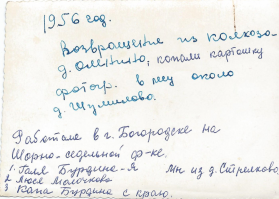 1956 год.
Возвращение из колхоза
д. Оленино, копали картошку
фотогр. в лесу около
д. Шумилово.
Работали в г. Богородске на
Шорно-седельной ф-ке.
1. Галя Бурдина - Я Мы из д. Стрелково
2 Люся Молочкова
3 Капа Бурдина с краю.